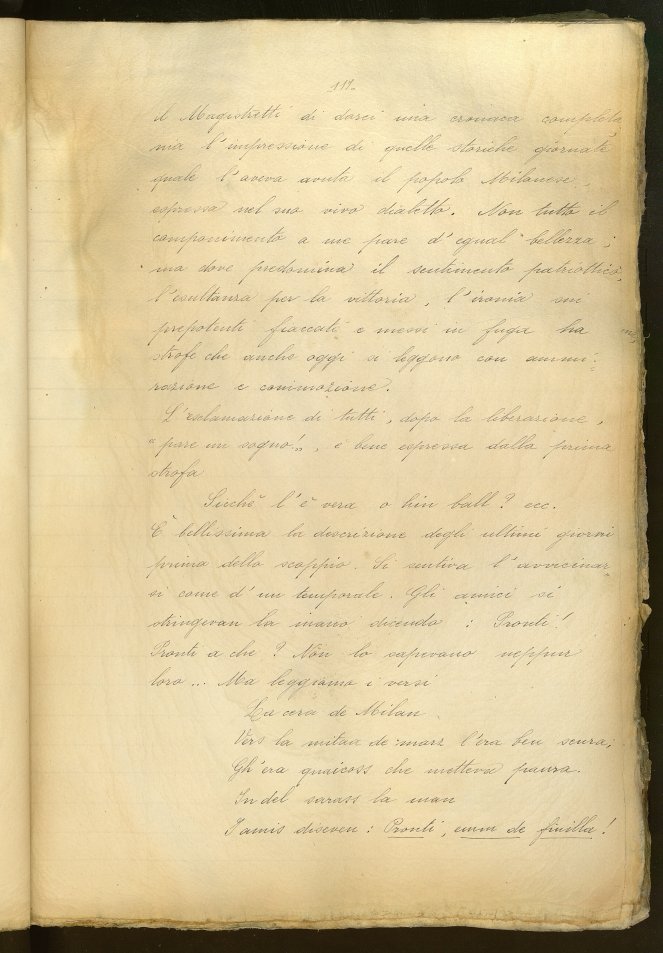 119.
il Magistretti di darci una cronaca completa
ma l'impressione di quelle storiche giornate
quale l'aveva avuta il popolo Milanese,
espressa nel suo vivo dialetto. Non tutto il
componimento a me pare d'egual bellezza;
ma dove predomina il sentimento patriottico,
l'esultanza per la vittoria, l'ironia sui
prepotenti fiaccati e messi in fuga ha
strofe che anche oggi si leggono con ammi-
razione e commozione.
L'esclamazione di tutti, dopo la liberazione,
"pare un sogno!", è bene espressa dalla prima
strofa
Sicchè l'è vera o hin ball? ecc.
È bellissima la descrizione degli ultimi giorni
prima dello scoppio. Si sentiva l'avvicinar
si come d'un temporale. Gli amici si
stringevan la mano dicendo: Pronti!
Pronti a che? Non lo sapevano neppur
loro... Ma leggiamo i versi
La cera de Milan
Vers la mitaa de marz l'era ben scura,
Gh'era quaicoss che metteva paura.
In del sarass la man
I amis diseven: Pronti, emm de finilla!